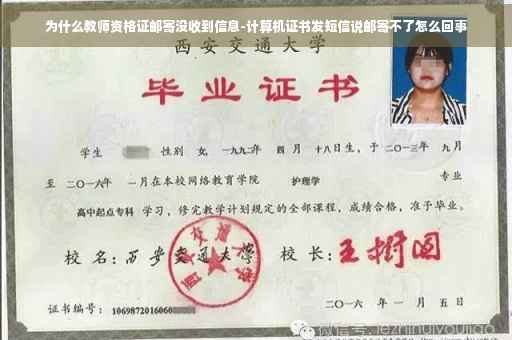 为什么教师资格证邮寄没收到信息-计算机证书发短信说邮寄不了怎么回事
西安交通大学
毕业证书
学生 性别 女,一九九二年 四 月 十八日生,于 二〇一三年 九月
至 二〇一六年 一月在本校网络教育学院 护理学 专业
高中起点专科 学习,修完教学计划规定的全部课程,成绩合格,准予毕业。
校 名:西安交通大学 校 长:王树国
西安交通大学
证书编号:1069872016060
二〇一六 年 一 月 五 日
微信号: jezhihuiyoujiao